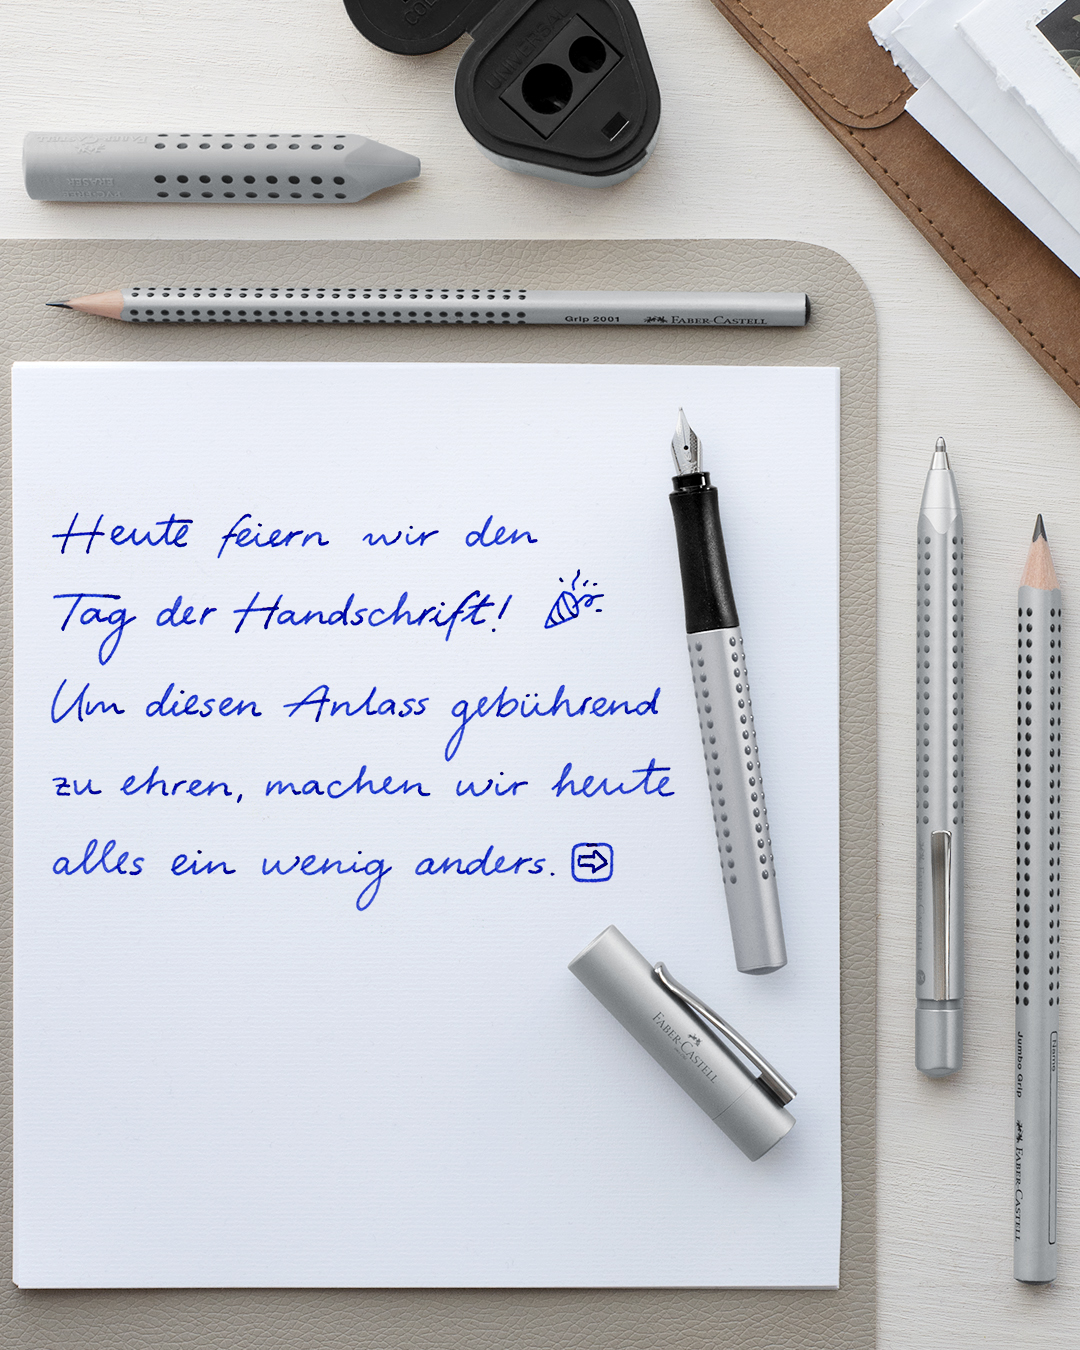 UNIVERSAL
FABER-CASTELL
ERASER
Grip 2001 FABER-CASTELL
Heute feiern wir den
Tag der Handschrift! 🎉
Um diesen Anlass gebührend
zu ehren, machen wir heute
alles ein wenig anders. ➡
FABER-CASTELL
Name
Jumbo Grip FABER-CASTELL